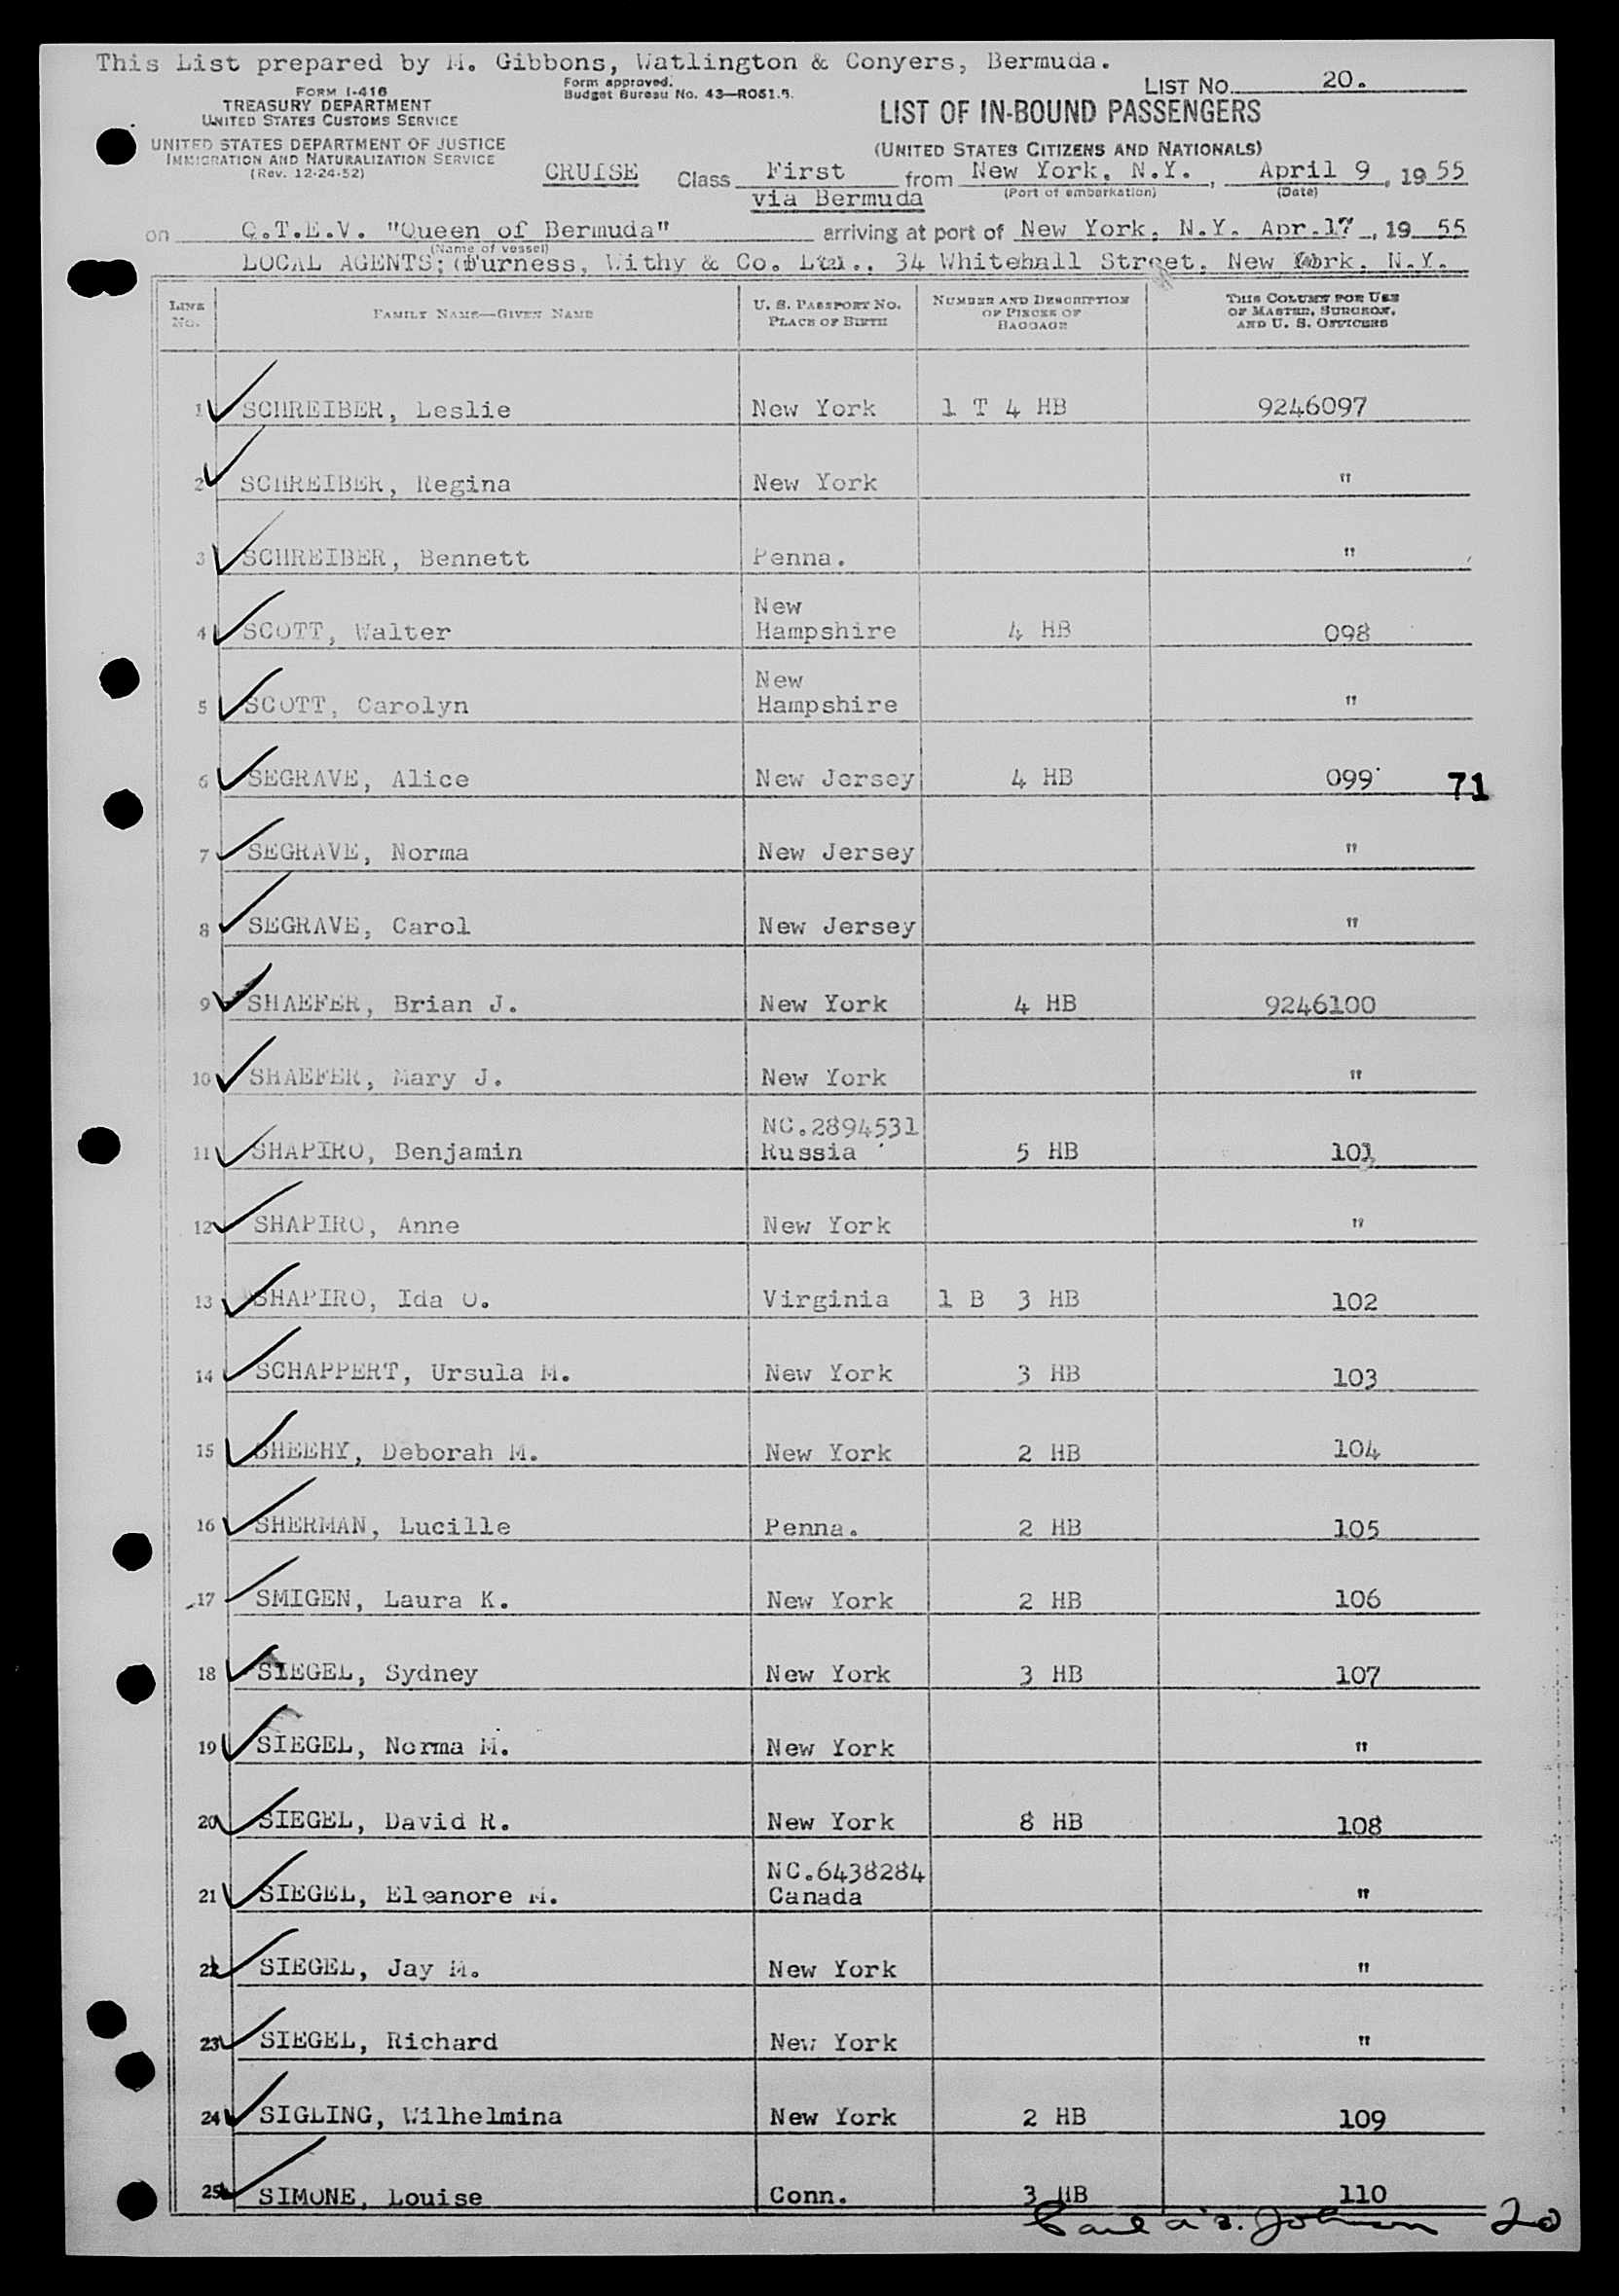 This List prepared by M. Gibbons, Watlington & Conyers, Bermuda.
FORM I-416
TREASURY DEPARTMENT
UNITED STATES CUSTOMS SERVICE
UNITED STATES DEPARTMENT OF JUSTICE
IMMIGRATION AND NATURALIZATION SERVICE
(Rev. 12-24-52)
Form approved.
Budget Bureau No. 43—R051.5.
LIST NO. 20.
LIST OF IN-BOUND PASSENGERS
(UNITED STATES CITIZENS AND NATIONALS)
CRUISE Class First from New York, N.Y., April 9, 19 55
via Bermuda (Port of embarkation) (Date)
on Q.T.E.V. "Queen of Bermuda" arriving at port of New York, N.Y. Apr.17, 19 55
(Name of vessel)
LOCAL AGENTS; Furness, Withy & Co. Ltd., 34 Whitehall Street, New York, N.Y.
LINE NO. FAMILY NAME—GIVEN NAME U. S. PASSPORT NO. PLACE OF BIRTH NUMBER AND DESCRIPTION OF PIECES OF BAGGAGE THIS COLUMN FOR USE OF MASTER, SURGEON, AND U. S. OFFICERS
1 SCHREIBER, Leslie New York 1 T 4 HB 9246097
2 SCHREIBER, Regina New York "
3 SCHREIBER, Bennett Penna. "
4 SCOTT, Walter New Hampshire 4 HB 098
5 SCOTT, Carolyn New Hampshire "
6 SEGRAVE, Alice New Jersey 4 HB 099 71
7 SEGRAVE, Norma New Jersey "
8 SEGRAVE, Carol New Jersey "
9 SHAEFER, Brian J. New York 4 HB 9246100
10 SHAEFER, Mary J. New York "
11 SHAPIRO, Benjamin NC.2894531 Russia 5 HB 101
12 SHAPIRO, Anne New York "
13 SHAPIRO, Ida O. Virginia 1 B 3 HB 102
14 SCHAPPERT, Ursula M. New York 3 HB 103
15 SHEEHY, Deborah M. New York 2 HB 104
16 SHERMAN, Lucille Penna. 2 HB 105
17 SMIGEN, Laura K. New York 2 HB 106
18 SIEGEL, Sydney New York 3 HB 107
19 SIEGEL, Norma M. New York "
20 SIEGEL, David R. New York 8 HB 108
21 SIEGEL, Eleanore M. NC.6438284 Canada "
22 SIEGEL, Jay M. New York "
23 SIEGEL, Richard New York "
24 SIGLING, Wilhelmina New York 2 HB 109
25 SIMONE, Louise Conn. 3 HB 110
Johnson 20